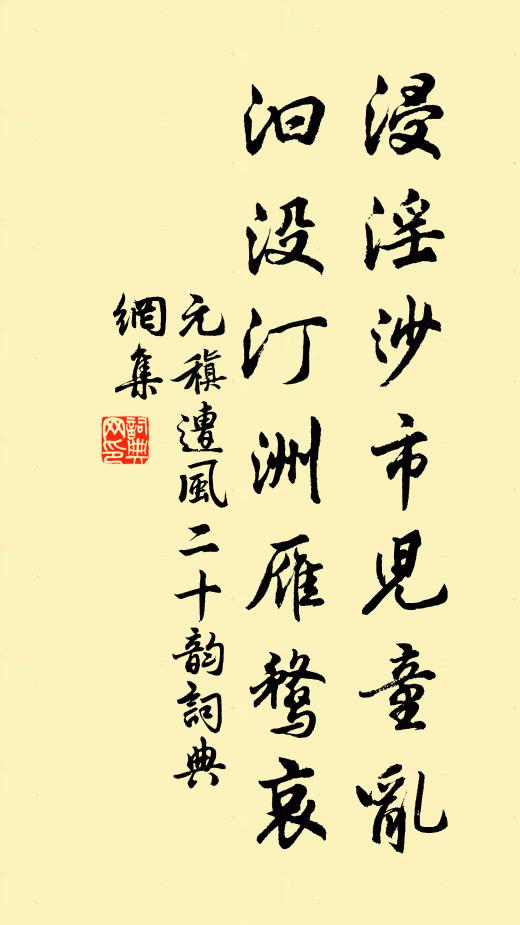 浸淫沙市兒童亂
汩没汀洲雁鶩哀
元稹遭風二十韵詞典
網集
詞典網印